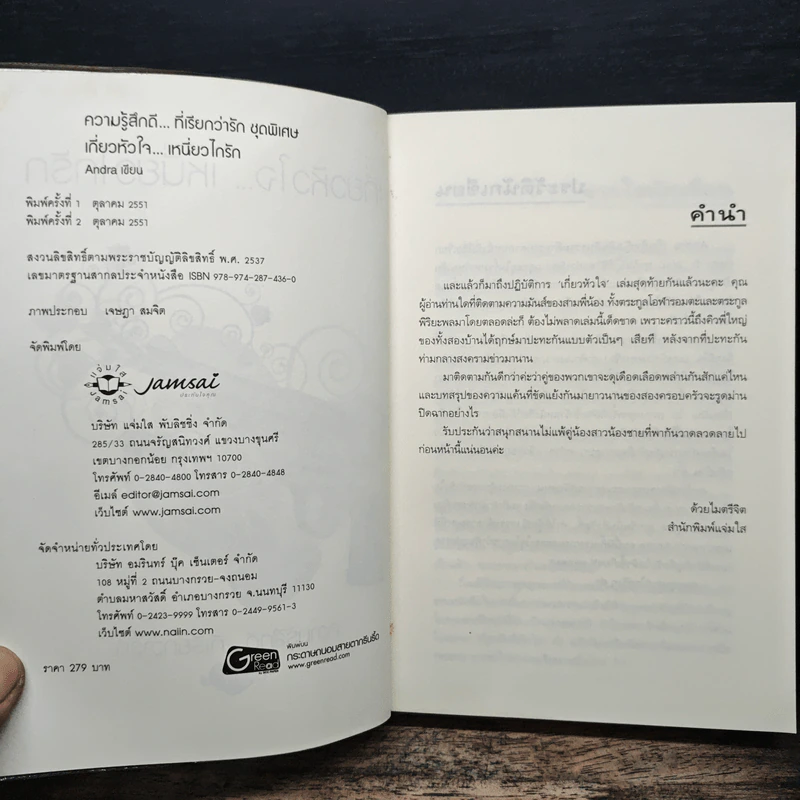 ความรู้สึกดี... ที่เรียกว่ารัก ชุดพิเศษ
เกี่ยวหัวใจ... เหนี่ยวไกรัก
Andra เขียน
พิมพ์ครั้งที่ 1 ตุลาคม 2551
พิมพ์ครั้งที่ 2 ตุลาคม 2551
สงวนลิขสิทธิ์ตามพระราชบัญญัติลิขสิทธิ์ พ.ศ. 2537
เลขมาตรฐานสากลประจำหนังสือ ISBN 978-974-287-436-0
ภาพประกอบ เจษฎา สมจิต
จัดพิมพ์โดย
แจ่มใส
Jamsai
jamsai
บริษัท แจ่มใส พับลิชชิ่ง จำกัด
285/33 ถนนจรัญสนิทวงศ์ แขวงบางขุนศรี
เขตบางกอกน้อย กรุงเทพฯ 10700
โทรศัพท์ 0-2840-4800 โทรสาร 0-2840-4848
อีเมล์ editor@jamsai.com
เว็บไซต์ www.jamsai.com
จัดจำหน่ายทั่วประเทศโดย
บริษัท อมรินทร์ บุ๊ค เซ็นเตอร์ จำกัด
108 หมู่ที่ 2 ถนนบางกรวย-จงถนอม
ตำบลมหาสวัสดิ์ อำเภอบางกรวย จ.นนทบุรี 11130
โทรศัพท์ 0-2423-9999 โทรสาร 0-2449-9561-3
เว็บไซต์ www.naiin.com
ราคา 279 บาท
Green Read
พิมพ์บน
กระดาษถนอมสายตากรีนรี้ด
www.greenread.com
คำนำ
และแล้วก็มาถึงปฏิบัติการ 'เกี่ยวหัวใจ' เล่มสุดท้ายกันแล้วนะคะ คุณ
ผู้อ่านท่านใดที่ติดตามความมันส์ของสามพี่น้อง ทั้งตระกูลโอฬารอมตะและตระกูล
พิริยะพลมาโดยตลอดล่ะก็ ต้องไม่พลาดเล่มนี้เด็ดขาด เพราะคราวนี้ถึงคิวพี่ใหญ่
ของทั้งสองบ้านได้ฤกษ์มาปะทะกันแบบตัวเป็นๆ เสียที หลังจากที่ปะทะกัน
ท่ามกลางสงครามข่าวมานาน
มาติดตามกันดีกว่าค่ะว่าคู่ของพวกเขาจะดุเดือดเลือดพล่านกันสักแค่ไหน
และบทสรุปของความแค้นที่ขัดแย้งกันมายาวนานของสองครอบครัวจะรูดม่าน
ปิดฉากอย่างไร
รับประกันว่าสนุกสนานไม่แพ้คู่น้องสาวน้องชายที่พากันวาดลวดลายไป
ก่อนหน้านี้แน่นอนค่ะ
ด้วยไมตรีจิต
สำนักพิมพ์แจ่มใส